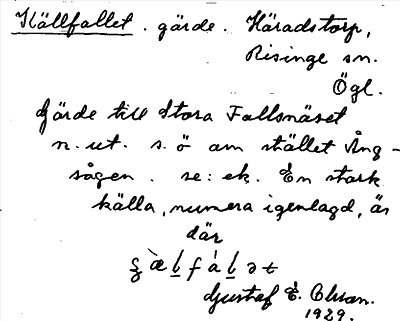 Källfallet . gärde . Häradstorp,
Risinge sn.
Ögl.
Gärde till Stora Fallsnäset
n. ut. s. ö om stället Ång-
sågen . se: ek. En stark
källa, numera igenlagd, är
där
Gustaf E. Olsson.
1929.